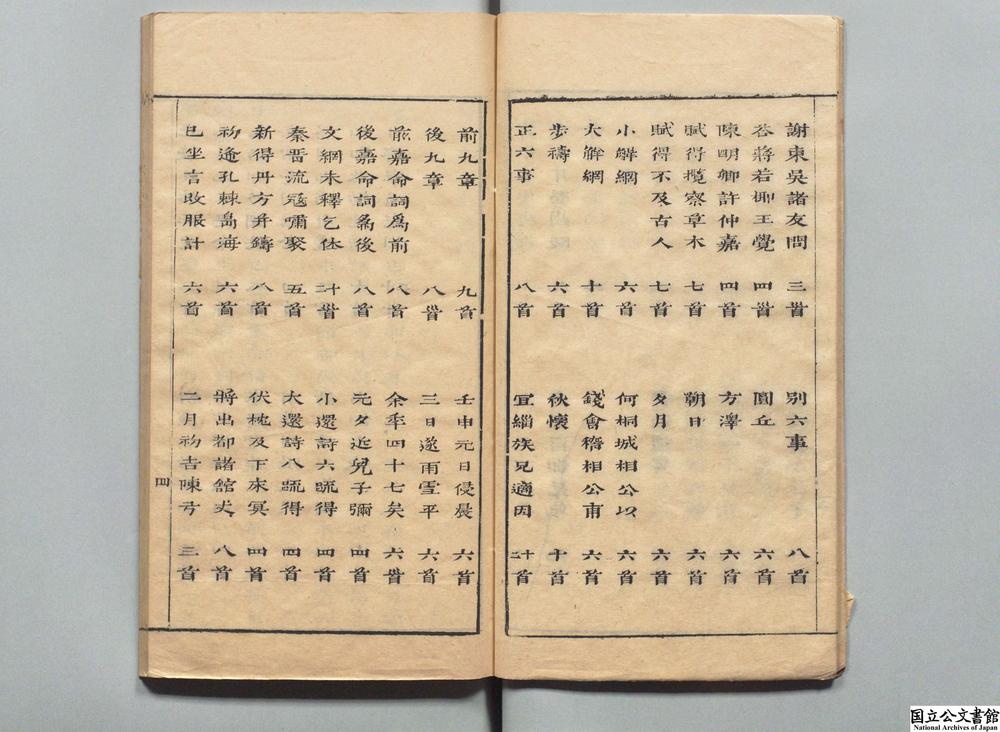 謝東吳諸友問 三首 別六事 八首
答蔣若椰王覺 四首 圜丘 六首
陳明卿許仲嘉 四首 方澤 六首
賦得攬察草木 七首 朝日 六首
賦得不及古人 七首 夕月 六首
小解網 六首 何桐城相公以 六首
大解網 十首 錢會稽相公甫 六首
步禱 六首 秋懷 十首
正六事 八首 宜緇族兄適因 二十首
前九章 九首 壬申元日侵晨 六首
後九章 八首 三日遂雨雪平 六首
前嘉命詞爲前 八首 余年四十七矣 六首
後嘉命詞爲後 八首 元夕近兒子彌 四首
文網未釋乞休 二十首 小還詩六疏得 四首
秦晋流寇嘯聚 五首 大還詩八疏得 四首
新得丹方并鑄 八首 伏枕及下來冥 四首
初逄孔棘島海 六首 將出都諸館丈 八首
已坐言改服計 六首 二月初吉陳弓 三首
四
国立公文書館
National Archives of Japan